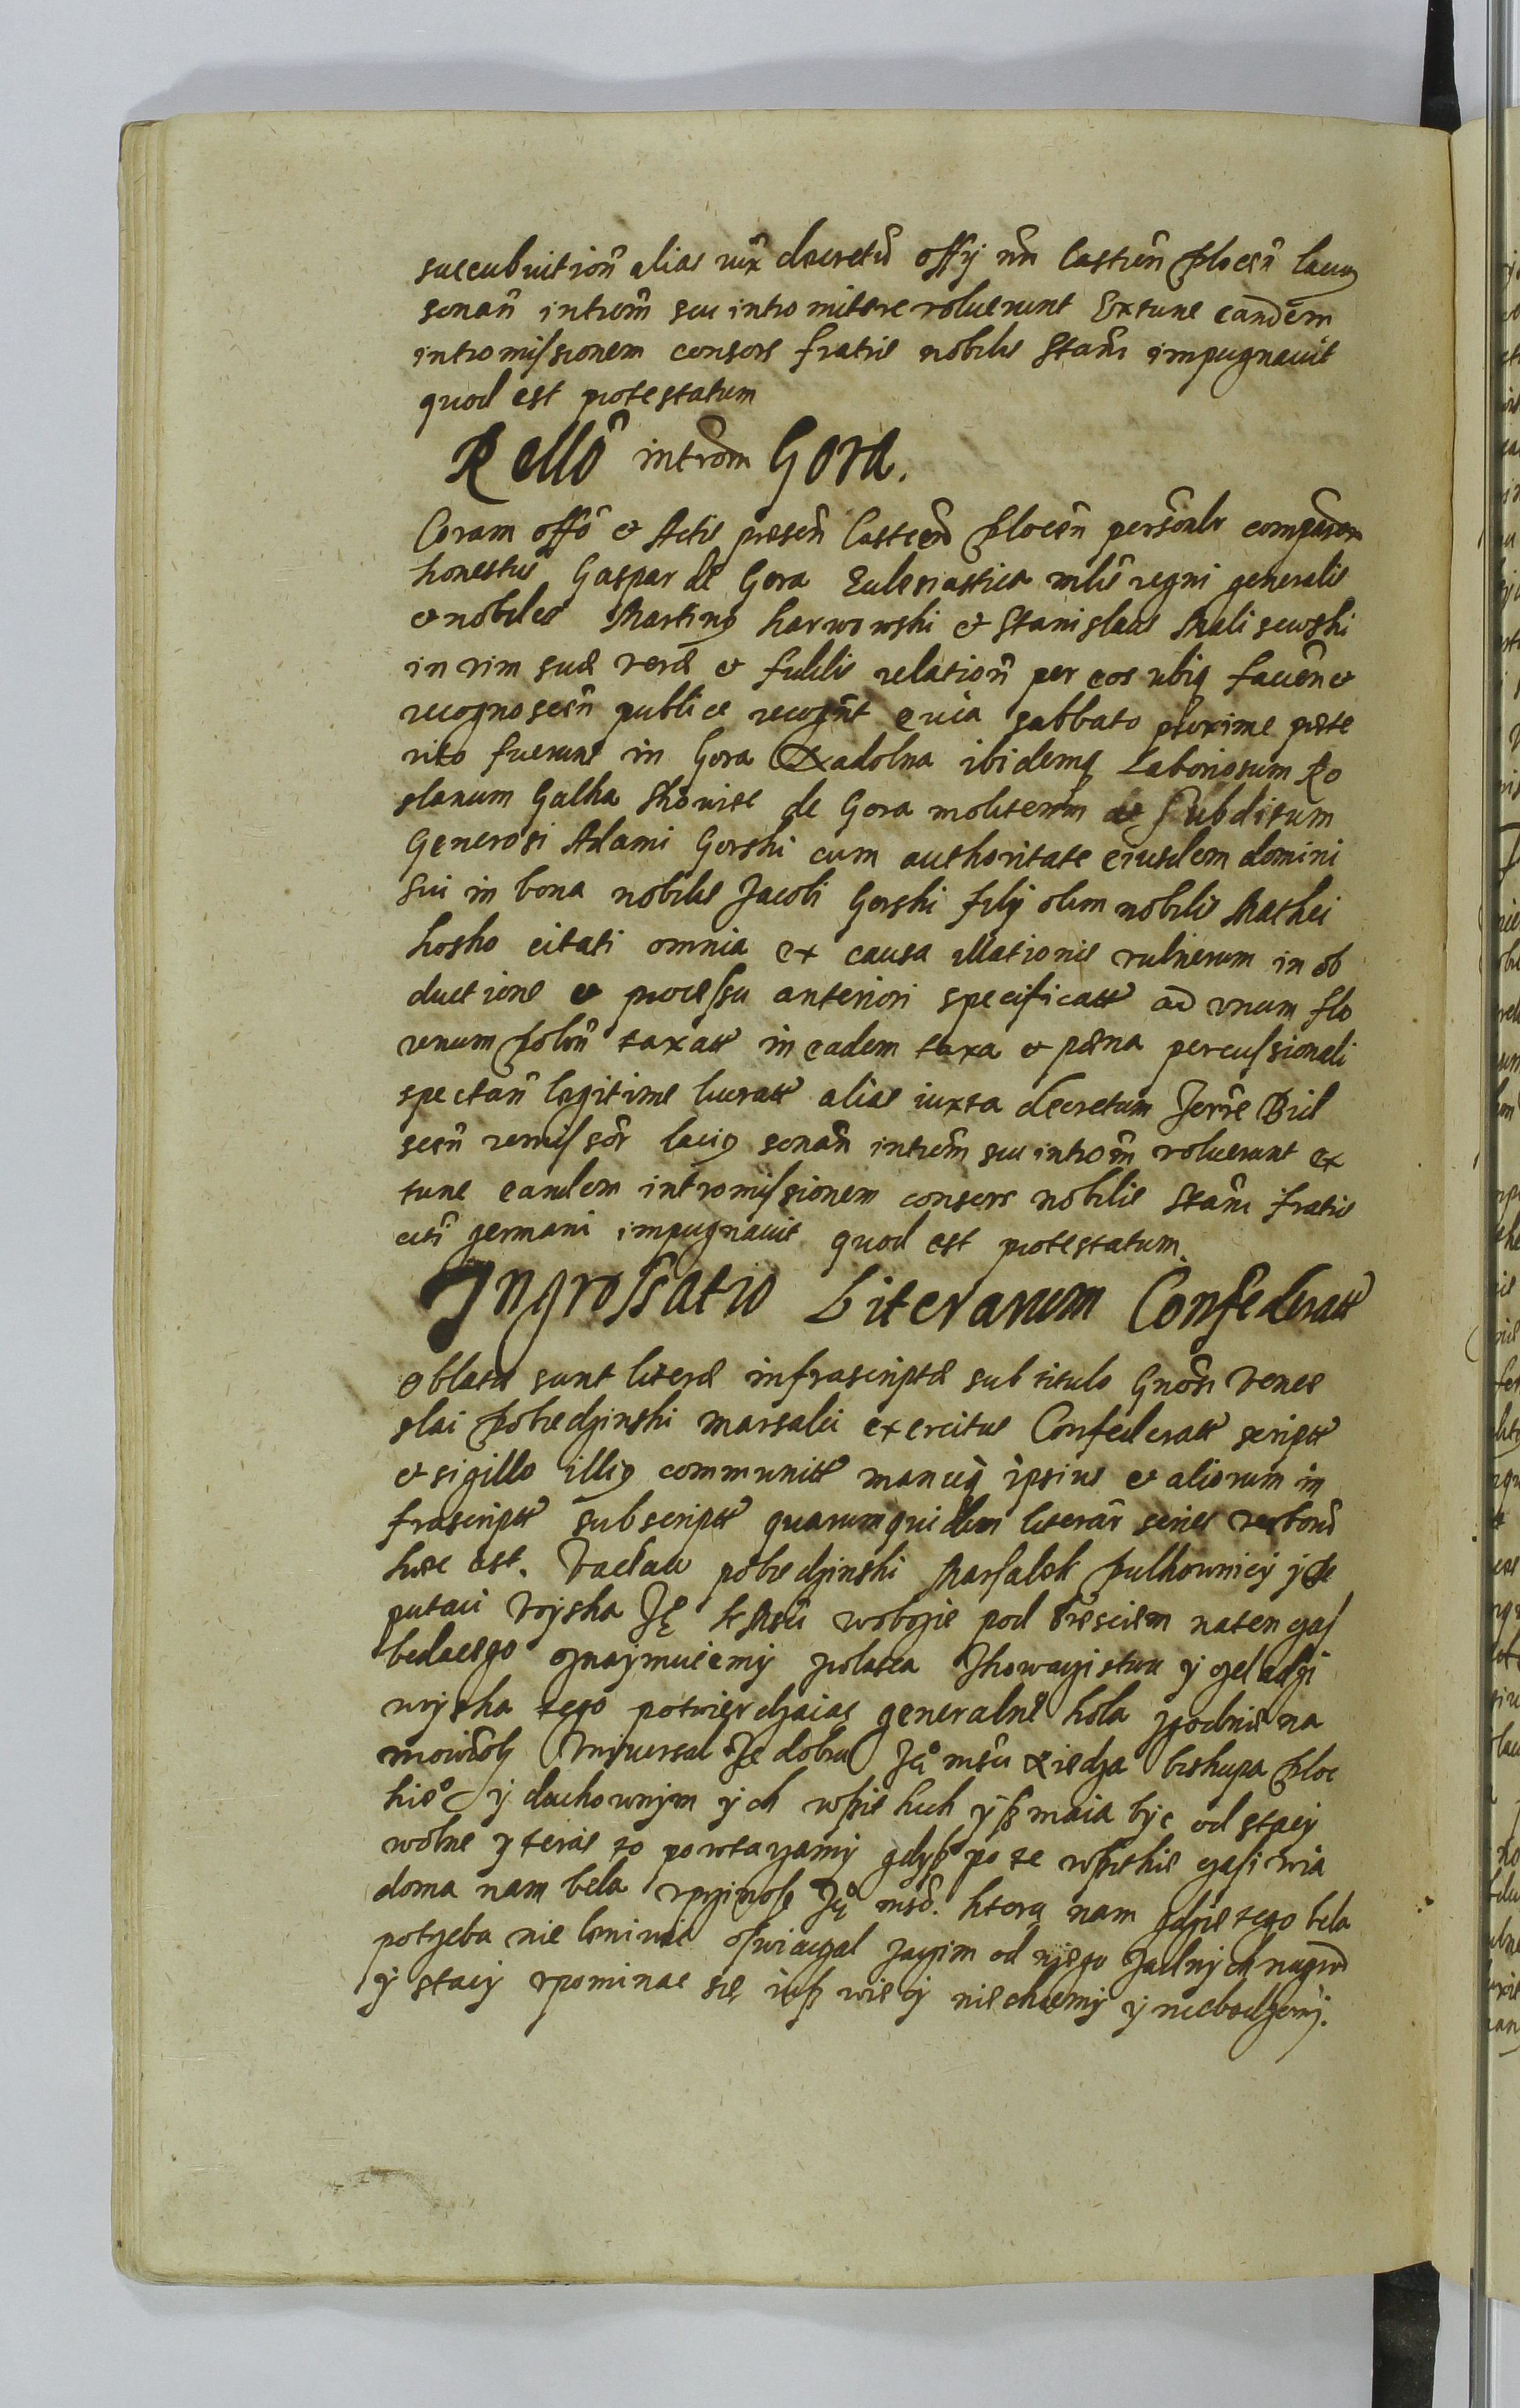 succubuition alias iux decretū offy nri Castrēn plocēn lacius
sonañ introm̄ seu intromittere voluerunt Extunc eandem
intromissionem consors fratris nobilis Stañi impugnauit
quod est protestatum
Rellō introm̄ Gora.
Coram offō et Actis presen̄ Castren̄ plocen̄ personaliter comparen̄
honestus Gaspar de Gora Eclesiastica mlris regni generalis
et nobiles Martinus karwowski et Stanislaus Malisewski
in vim suæ veræ et fidelis relation̄ per eos ubiq facien̄ et
recognoscen̄ publice recognt quia sabbato proxime præte
rito fuerunt in Gora Zadolna ibidemq Laboriosum Ro
slanum Galka de Gora molitorem et subditum
Generosi Adami Gorski cum authoritate eiusdem domini
sui in bona nobilis Jacobi Gorski filij olim nobilis Mathei
kosko citati omnia ex causa illationis vulnerum in ob
ductione et processu anteriori specificatt ad vnum flo
renum polon̄ taxatt in eadem taxa et pæna percussionali
spectan̄ legitime lucratt alias iuxta decretum Terræ Biel
scen̄ remissor̄ lacius sonan̄ introm̄ seu introm̄ voluerunt ex
tunc eandem intromissionem consors nobilis Stañi fratris
citi germani impugnauit quod est protestatum.
Ingrossatio Literarum Confederatt
Oblatæ sunt literæ infrascriptæ sub titulo Gnosi Vence
slai pobiedzinski marsalci exercitus Confederatt scriptt
et sigillo illius communitt manuq ipsius et aliorum in
frascriptt subscriptt quarumquidem literār series verborū
hæc est. Vaclaw pobiedzinski Marsalek pulkownicy y de
putaci woyska Je k Mśći wobozie pod brzesciem natenczas
bedacego oznaymuiemy zolatca Thowazistwu y czeladzi
woyska tego potwierdzaiac generalne kola zgodnie na
mowiony Vniuersal Ze dobra Je mśći xiedza biskupa ploc
kie y duchownym ych wszistkich ysz maia byc od stacy
wolne y teras to powtazamy gdysz po te wszistkie czasi wia
doma nam bela vprzimosc Je mśći. ktorą nam gdzie tego bela
potzeba nie leniwie oswiaczal zaczim od niego zadnych
y stacy vpominac się iusz wiecy niechcemy y niebedziemy.